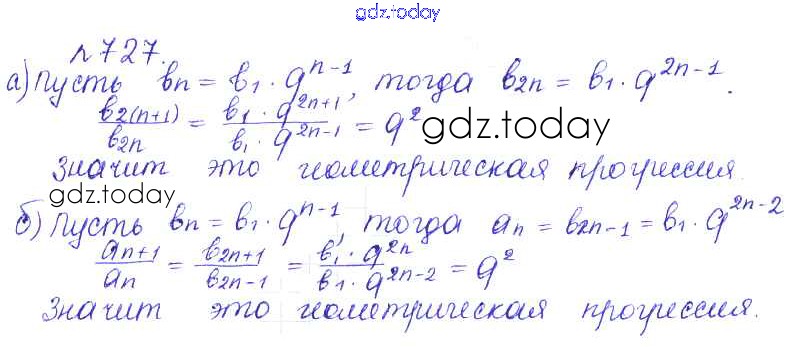 gdz.today
№727.
а) Пусть bₙ = b₁ · qⁿ⁻¹, тогда b₂ₙ = b₁ · q²ⁿ⁻¹.
b₂₍ₙ₊₁₎/b₂ₙ = b₁ · q²ⁿ⁺¹/b₁ · q²ⁿ⁻¹ = q² gdz.today
Значит это геометрическая прогрессия.
gdz.today
б) Пусть bₙ = b₁ · qⁿ⁻¹, тогда aₙ = b₂ₙ₋₁ = b₁ · q²ⁿ⁻²
aₙ₊₁/aₙ = b₂ₙ₊₁/b₂ₙ₋₁ = b₁ · q²ⁿ/b₁ · q²ⁿ⁻² = q²
Значит это геометрическая прогрессия.